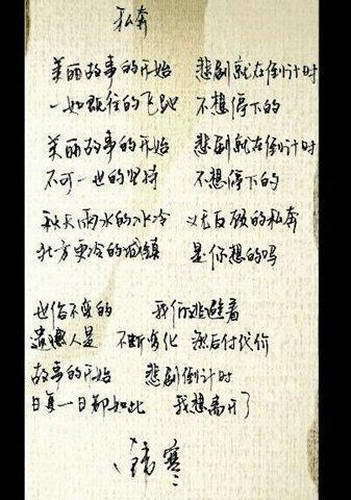 私奔
美丽故事的开始 悲剧就在倒计时
一如既往的飞驰 不想停下的
美丽故事的开始 悲剧就在倒计时
不可一世的坚持 不想停下的
秋天雨水的冰冷 义无反顾的私奔
北方更冷的城镇 是你想的吗
世俗不变的 我们逃避着
遗憾人是 不断变化 然后付代价
故事的开始 悲剧倒计时
日复一日都如此 我想离开了
韩寒